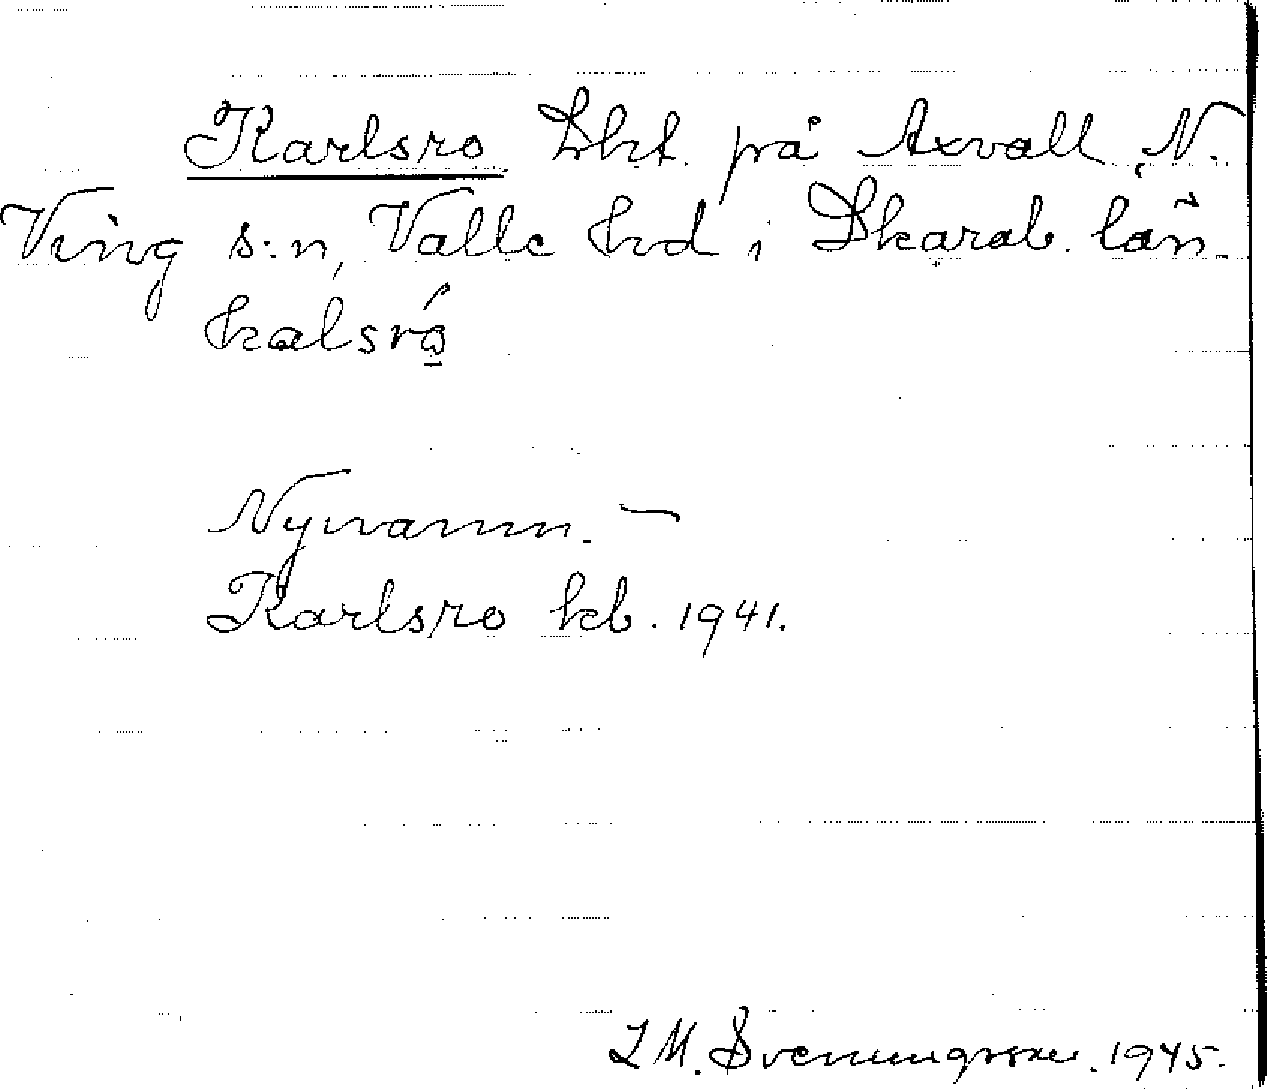 Karlsro Lht. på Axvall, N.
Ving s:n, Valle hd i Skarab. län.
kalsró̱
Nynamn. —
Karlsro kb. 1941.
L M. Svenningsson. 1945.